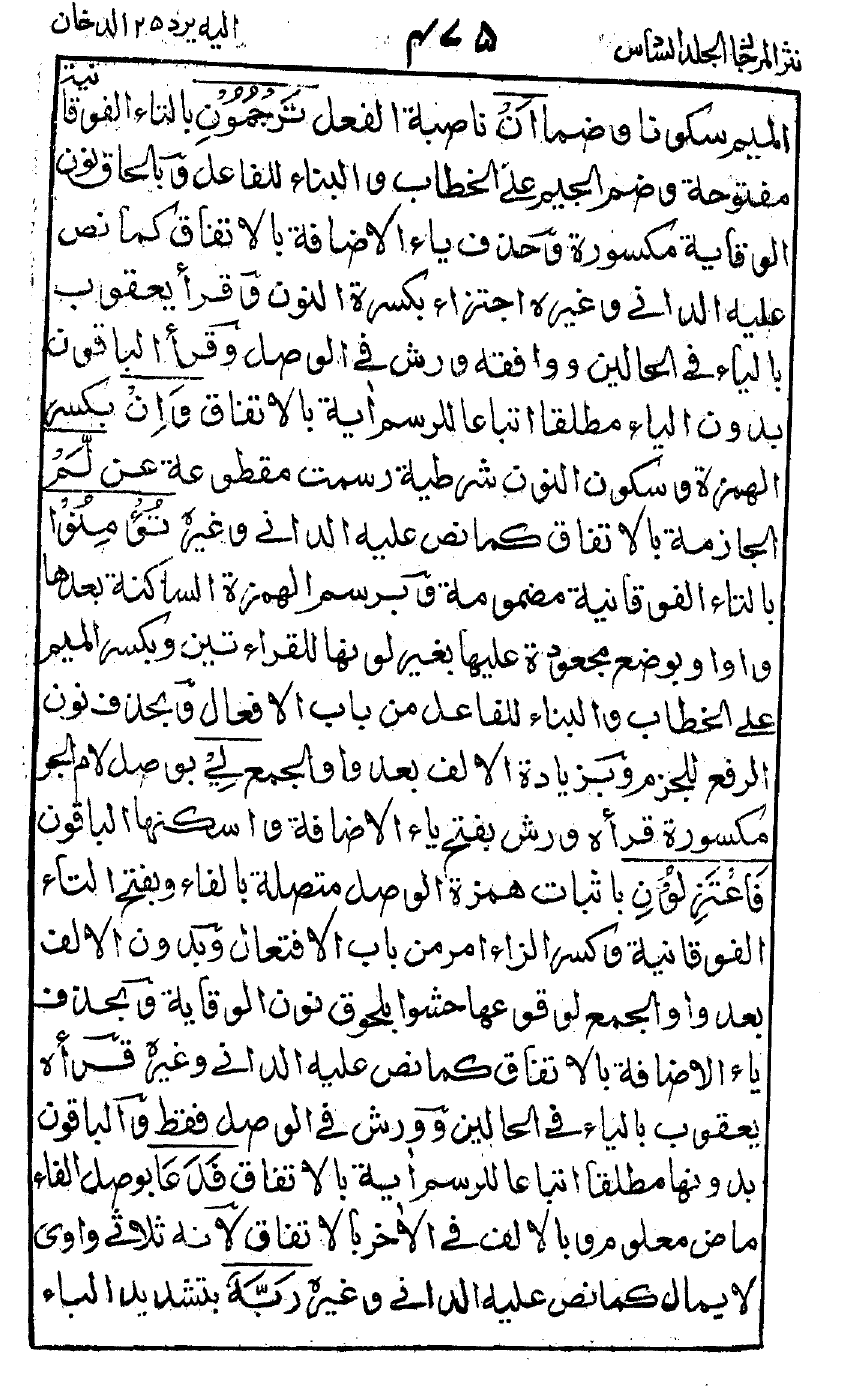 نثر المرجان الجلد السادس ٤٧٥ اليه يرد ٢٥ الدخان
الميم سكونا وضما اَنْ ناصبة الفعل تَرْجُمُوْنِ بالتاء الفوقانية
مفتوحة وضم الجيم على الخطاب والبناء للفاعل وبالحاق نون
الوقاية مكسورة وحذف ياء الاضافة بالاتفاق كما نص
عليه الداني وغيره اجتزاء بكسرة النون وقرأ يعقوب
بالياء في الحالين ووافقه ورش في الوصل وقرأ الباقون
بدون الياء مطلقا اتباعا للرسم أية بالاتفاق وَاِنْ بكسر
الهمزة وسكون النون شرطية رسمت مقطوعة عن لَّمْ
الجازمة بالاتفاق كما نص عليه الداني وغيره تُؤْمِنُوْا
بالتاء الفوقانية مضمومة وبرسم الهمزة الساكنة بعدها
واوا وبوضع مجعودة عليها بغير لونها للقراءتين وبكسر الميم
على الخطاب والبناء للفاعل من باب الافعال وبحذف نون
الرفع للجزم وبزيادة الالف بعد واو الجمع لِيْ بوصل لام الجر
مكسورة قرأه ورش بفتح ياء الاضافة واسكنها الباقون
فَاعْتَزِلُوْنِ باثبات همزة الوصل متصلة بالفاء وبفتح التاء
الفوقانية وكسر الزاء امر من باب الافتعال وبدون الالف
بعد واو الجمع لوقوعها حشوا بلحوق نون الوقاية وبحذف
ياء الاضافة بالاتفاق كما نص عليه الداني وغيره قرأه
يعقوب بالياء في الحالين وورش في الوصل فقط والباقون
بدونها مطلقا اتباعا للرسم أية بالاتفاق فَدَعَا بوصل الفاء
ماض معلوم وبالالف في الأخر بالاتفاق لانه ثلاثي واوي
لا يمال كما نص عليه الداني وغيره رَبَّهٗ بتشديد الباء